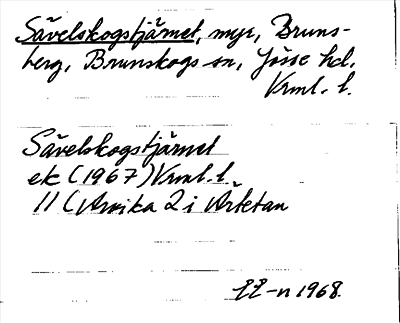 Sävelskogstjärnet, myr, Bruns-
berg, Brunskogs sn, Jösse hd.
Vrml. l.
Sävelskogstjärnet
ek (1967) Vrml. l.
11 C Arvika 2 i Ärtetan
EE-n 1968.